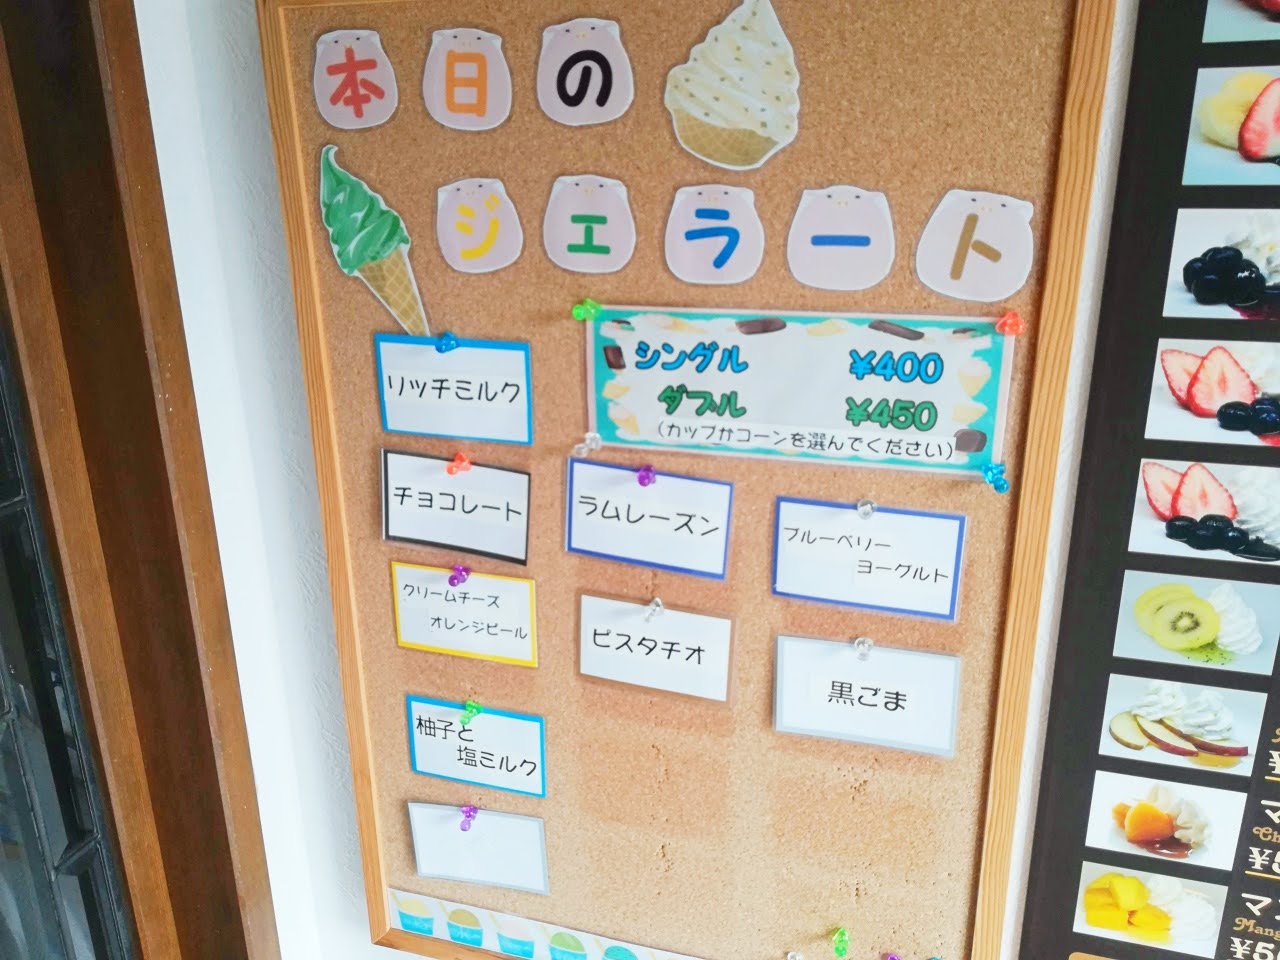 本日の
ジェラート
シングル ¥400
ダブル ¥450
(カップかコーンを選んでください)
リッチミルク
チョコレート
ラムレーズン
ブルーベリー
ヨーグルト
クリームチーズ
オレンジピール
ピスタチオ
黒ごま
柚子と
塩ミルク